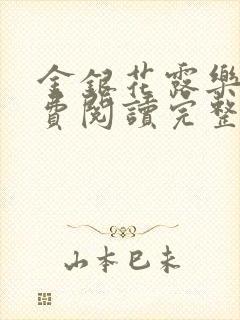 金銀花露樂
費閱讀完整
山本巳未